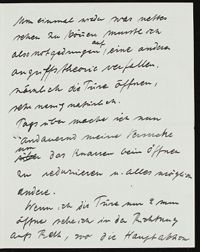 Um einmal wieder was nettes
sehen zu können musste ich
also notgedrungen auf eine andere
angriffstheorie verfallen.
nämlich die Türe öffnen,
sehr vorsichtig natürlich.
Tags über mache ich nun
andauernd meine Versuche
um das Knarren beim Öffnen
zu reduzieren u. alles mögliche
andere.
Wenn ich die Türe nur 2 mm
öffne sehe ich in der Richtung
aufs Bett, wo die Hauptaktion